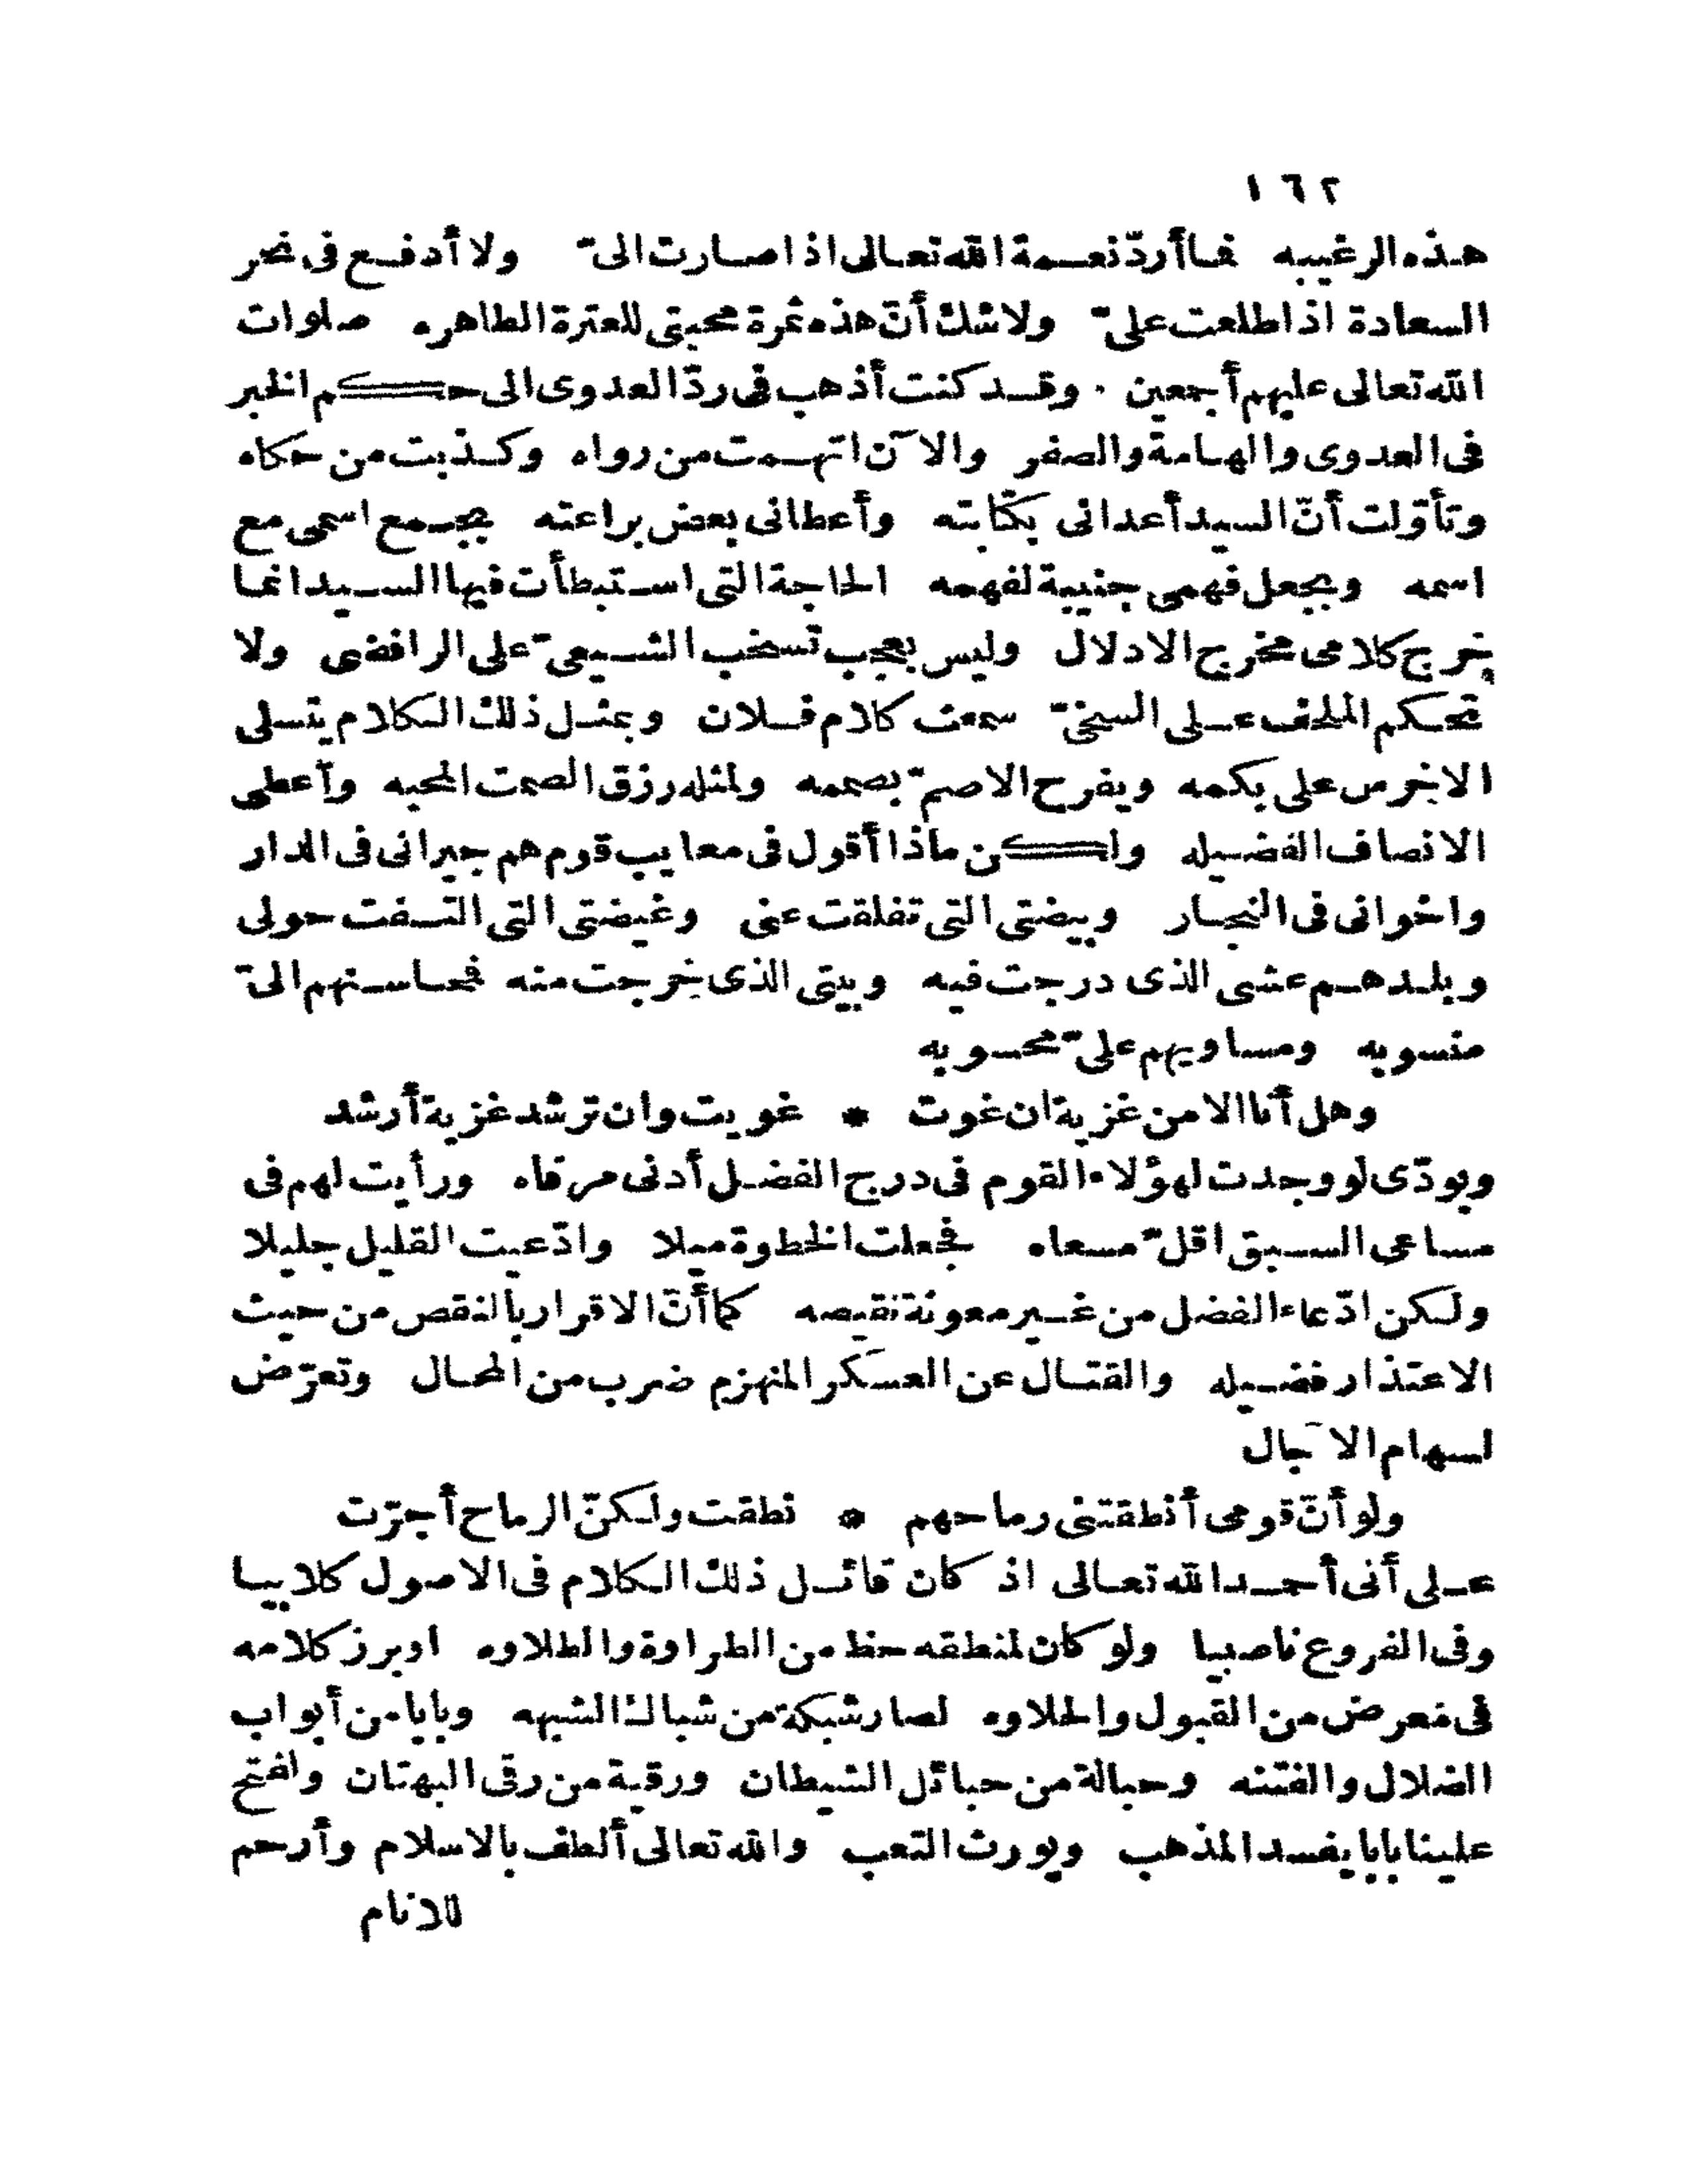 ١٦٢
هذه الرغيبه فما أردّ نعمة الله تعالى اذا صارت الىّ ولا أدفع فى نحر
السعادة اذا طلعت علىّ ولا شك أنّ هذه ثمرة محبتى للعترة الطاهره صلوات
الله تعالى عليهم أجمعين ٠ وقد كنت أذهب فى ردّ العدوى الى حكم الخبر
فى العدوى والهامة والصفر والآن اتهمت من رواه وكذبت من حكاه
وتأوّلت أنّ السيد أعدانى بكتابته وأعطانى بعض براعته بجمع اسمى مع
اسمه وبجعل فهمى جنيبة لفهمه الحاجة التى استبطأت فيها السيد انما
خرج كلامى مخرج الادلال وليس بعجب تسحب الشيعىّ على الرافضى ولا
تحكم الملحف على السخىّ سمعت كلام فلان وبمثل ذلك الكلام يتسلى
الاخرس على بكمه ويفرح الاصمّ بصممه ولمثله رزق الصمت المحبه وأعطى
الانصات الفضيله ولكن ماذا أقول فى معايب قوم هم جيرانى فى الدار
واخوانى فى النجار وبيضتى التى تفلقت عنى وغيضتى التى التفت حولى
وبلدهم عشى الذى درجت فيه وبيتى الذى خرجت منه فمحاسنهم الىّ
منسوبه ومساويهم علىّ محسوبه
وهل أنا الا من غزية ان غوت * غويت وان ترشد غزية أرشد
وبودّى لو وجدت لهؤلاء القوم فى درج الفضل أدنى مرقاه ورأيت لهم فى
مساعى السبق اقلّ مسعاه فجعلت الخطوة ميلا وادّعيت القليل جليلا
ولكن ادّعاء الفضل من غير معونة نقيصه كما أنّ الاقرار بالنقص من حيث
الاعتذار فضيله والقتال عن العسكر المنهزم ضرب من المحال وتعرّض
لسهام الآجال
ولو أنّ قومى أنطقتنى رماحهم * نطقت ولكنّ الرماح أجرّت
على أنى أحمد الله تعالى اذ كان قائل ذلك الكلام فى الاصول كلابيا
وفى الفروع ناصبيا ولو كان لمنطقه حظ من الطراوة والطلاوه اوبرز كلامه
فى معرض من القبول والحلاوه لصار شبكة من شباك الشبهه وبابا من أبواب
الضلال والفتنه وحبالة من حبائل الشيطان ورقية من رقى البهتان وافتتح
علينا بابا يفسد المذهب ويورث التعب والله تعالى ألطف بالاسلام وأرحم
للانام